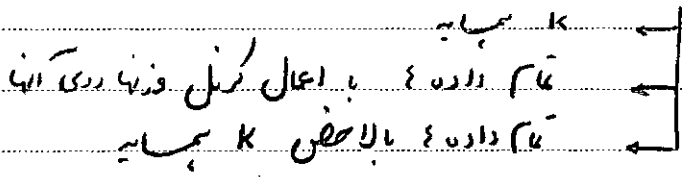 k همسایه
تمام داده ها با اعمال کرنل وزنها روی آنها
تمام داده ها بالاخص k همسایه